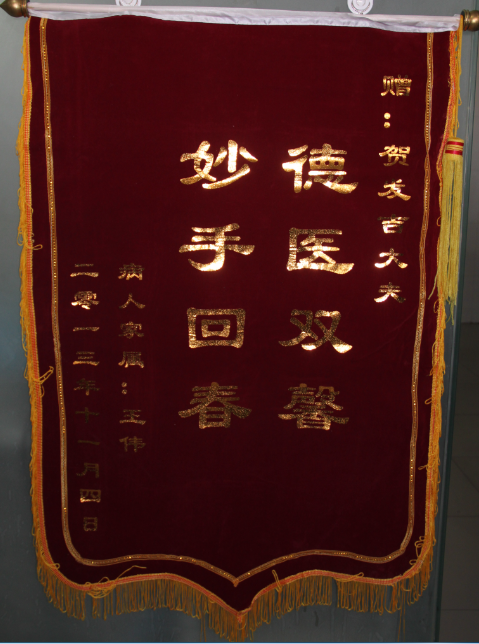 赠：贺友吉大夫
德医双馨
妙手回春
病人家属：王伟
二零一三年十一月四日